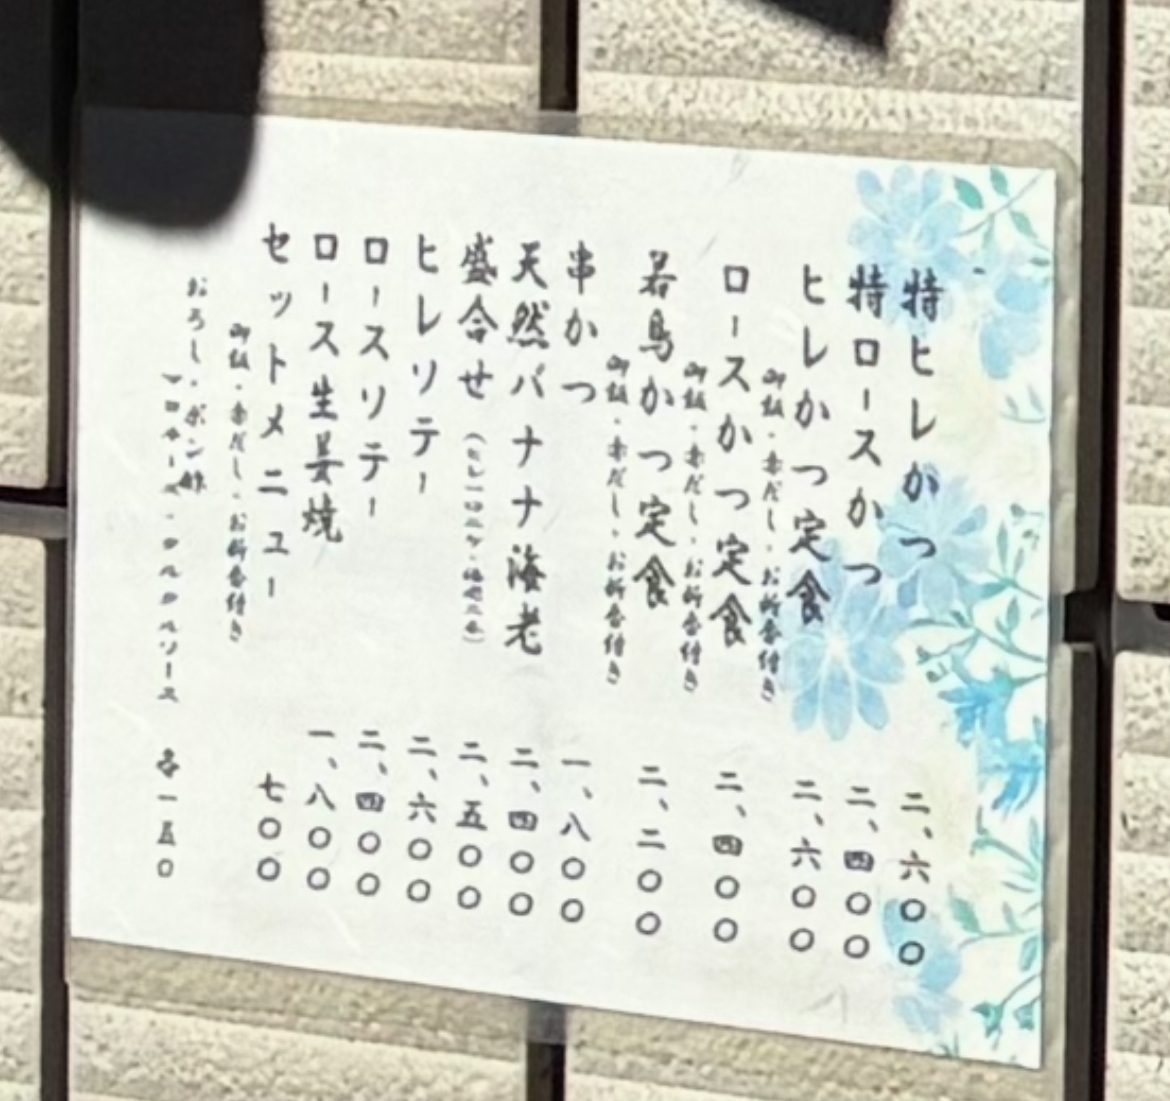 特ヒレかつ 二、六〇〇
特ロースかつ 二、四〇〇
ヒレかつ定食 二、六〇〇
御飯・赤だし・お新香付き
ロースかつ定食 二、四〇〇
御飯・赤だし・お新香付き
若鳥かつ定食 二、二〇〇
御飯・赤だし・お新香付き
串かつ 一、八〇〇
天然バナナ海老 二、四〇〇
盛合せ(ヒレ一口二ケ・海老二本) 二、五〇〇
ヒレソテー 二、六〇〇
ロースソテー 二、四〇〇
ロース生姜焼 一、八〇〇
セットメニュー 七〇〇
御飯・赤だし・お新香付き
おろし・ポン酢
・タルタルソース 各一五〇